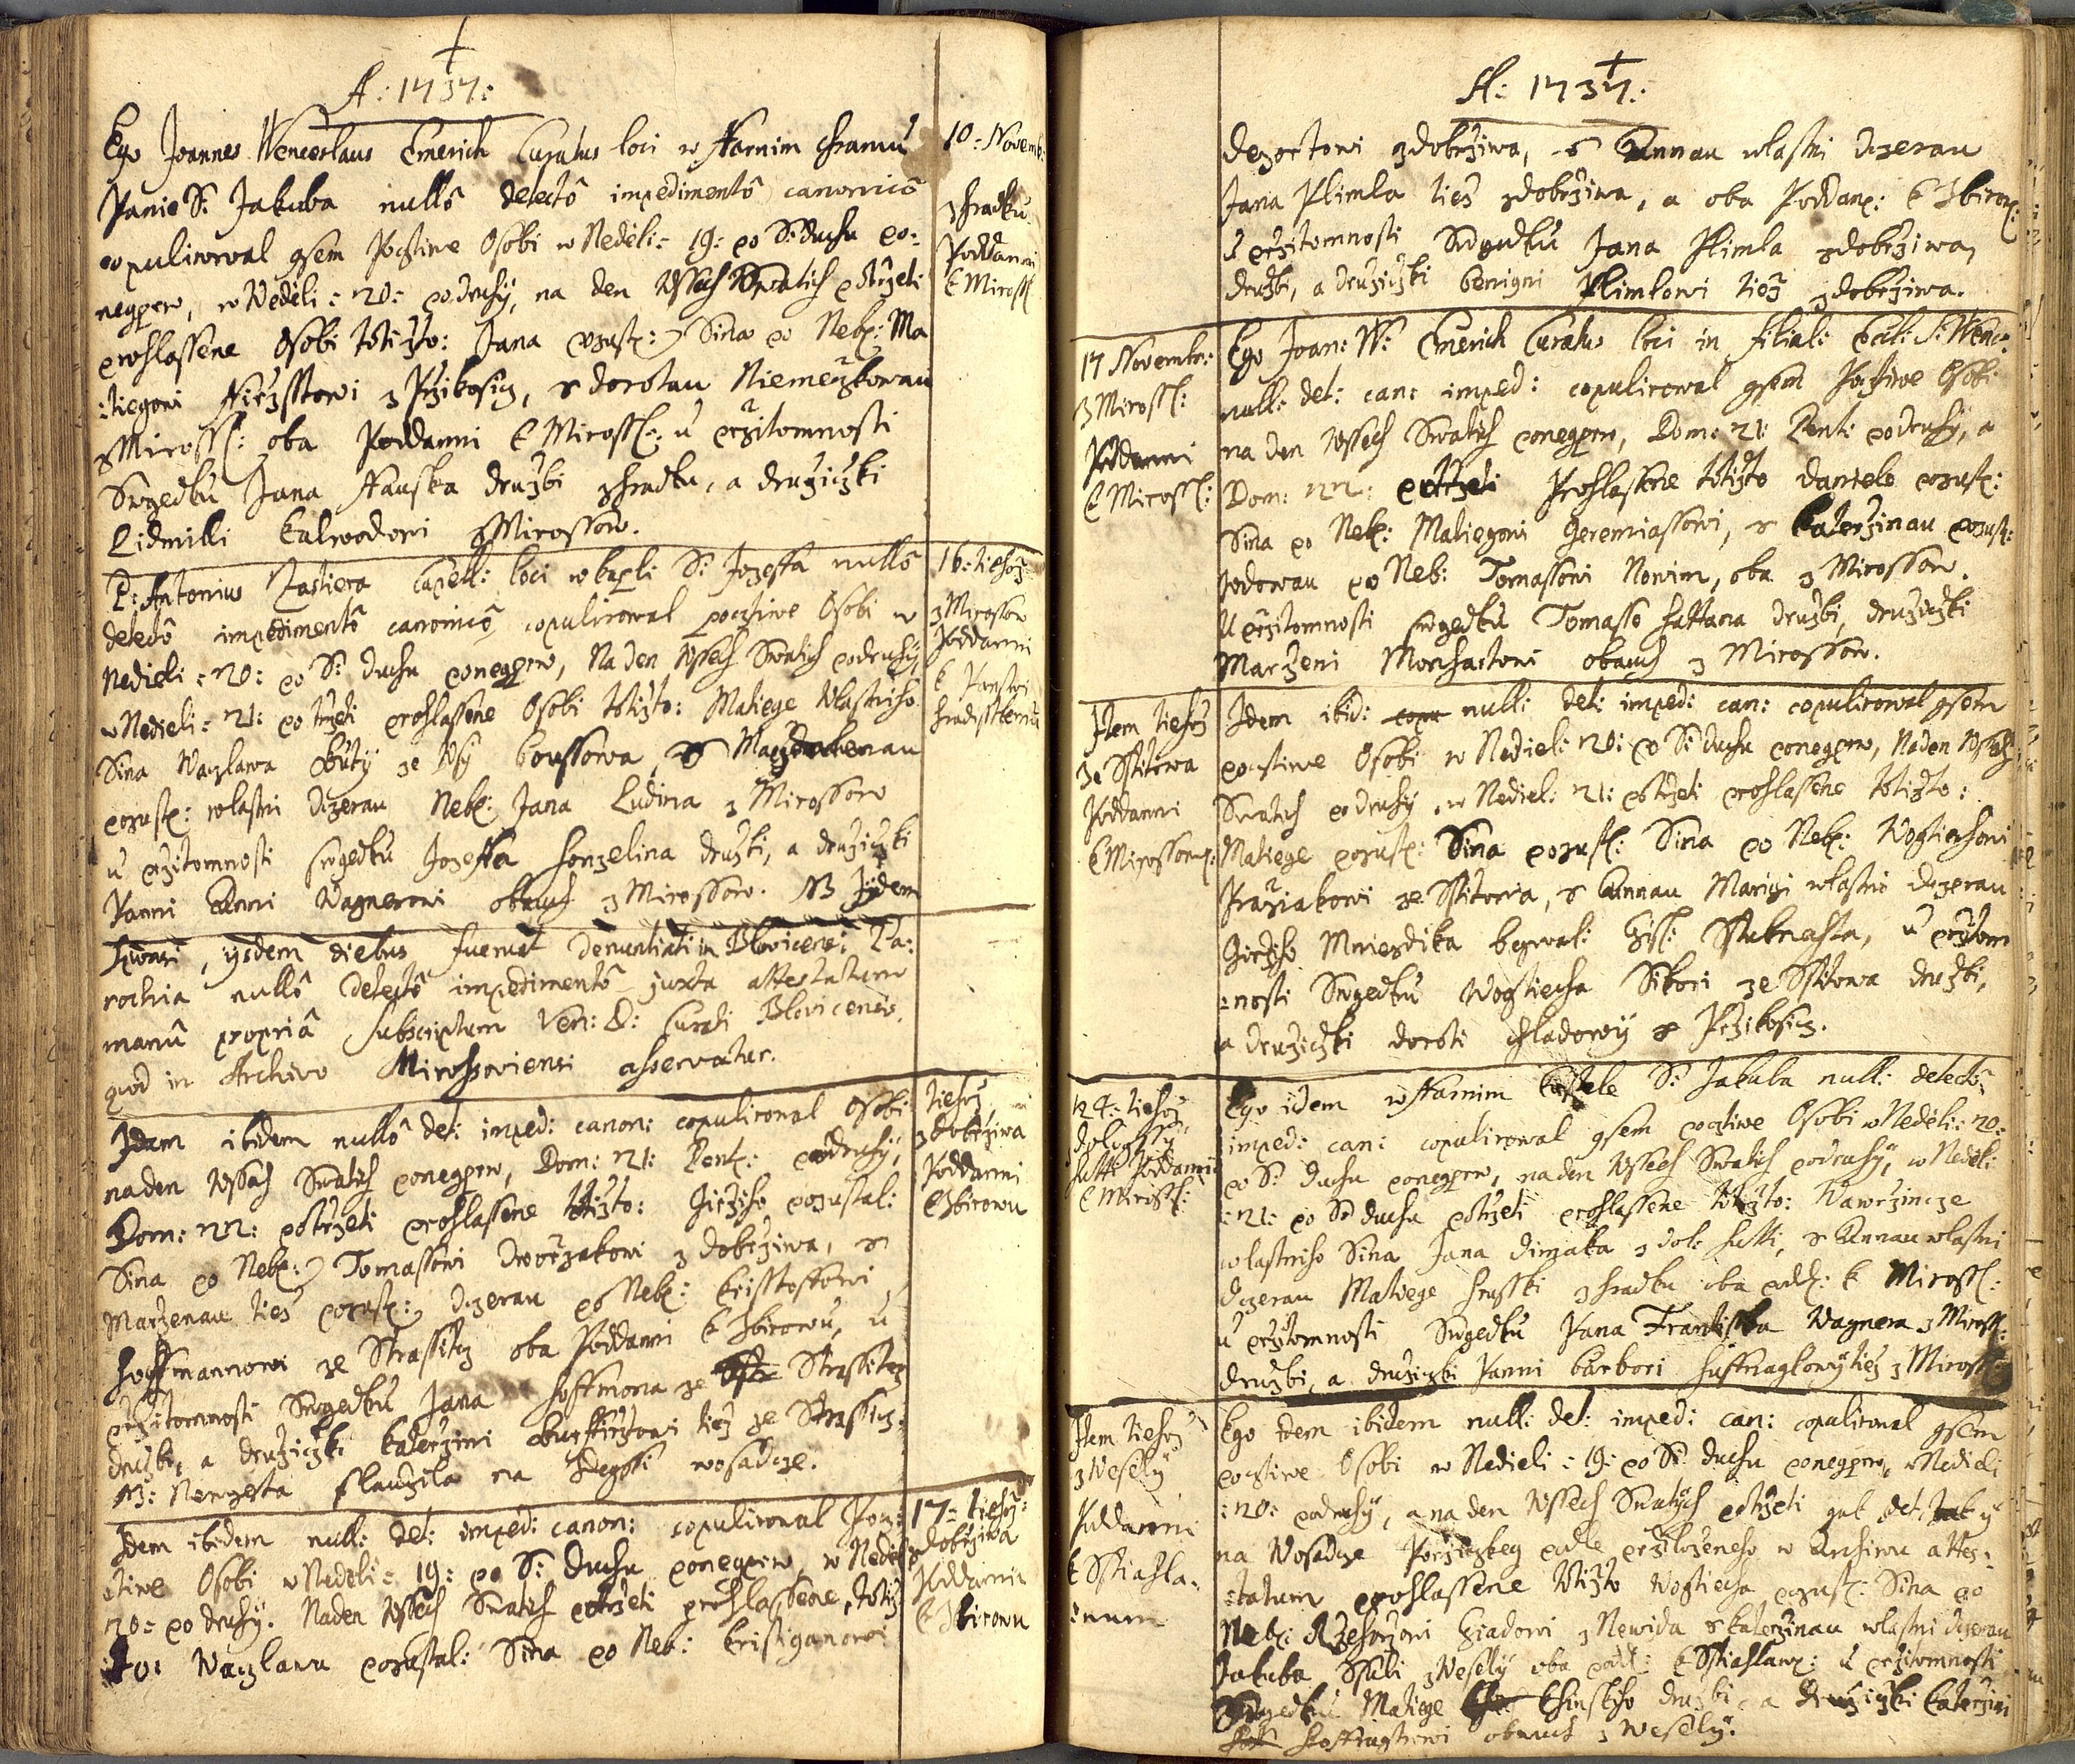 A: 1737:
Ego Joannes Wenceslaus Emerich Curatus loci w Farnim Chramu
Panie S: Jakuba nullô detectô impedimentô canonicô
copuliroval gsem Pocztiwe Osobi w Nedèli: 19: po S: Duchu po=
negprw, w Nedèli: 20: podruhÿ, na den Wssech Swatich potrzeti
prohlassene Osobi totizto: Jana pozust: Sina po Neb: Ma
:tiegowi z Przikosicz, s Dorotau Niemeczkowau
z Miross: oba Poddanni k Miross: u przitomnosti
Swgedku Jana Hauska druzbi z hradku, a druziczki
Lidmilli Kalwodowi z Mirossow.
10: Novemb:
z hradku
Poddanni
k Miross
P: Antonius Capell: loci w kapli S: Jozeffa nullô
detectô impedimentô canonicô copuliroval poctiwe Osobi w
Nedieli: 20: po S: Duchu ponegprw, Na den Wssech Swatich podruhÿ,
w Nedieli: 21: po trzeti prohlassene Osobi totizto: Matiege Wlastniho
Sina Waczlawa ze Wsÿ boussowa, s Magdalenau
pozust: wlastni dczerau Neb: Jana Ludina z Mirossow
u przitomnosti swgedku Jozeffa honzelina druzbi, a druziczki
Panni Anni Wagnerowi obauch z Mirossow. NB Jidem
Sponsi, ijsdem diebus fuerunt denuntiati in Blovicensi Pa:
rochia nullô detectô impedimentô juxta attestatum
manû propriâ subscriptum Ven: D: Curati Blovicensis,
quod in Archivo Mirossoviensi asservatur.
16: tiehoz
z Mirossow
Poddanni
k Panstwi
hradissten
Idem ibidem nullô det: imped: canon: copuliroval Osobi
naden Wssech Swatich ponegprw, Dom: 21: Pent: podruhÿ,
Dom: 22: potrzeti prohlassene totizto: Girziho pozustal:
Sina po Neb: Tomassowi Dworzakowi z Dobrziwa, s
Marzenau tiez pozust: dczerau po Neb: Kristoffowi
Hoffmannowi ze Strassitcz oba Poddanni k Zbirowu, u
przitomnosti Swgedku Jana Hoffmona ze Strassitcz
druzbi, a druziczki Katerzini tiez ze Strassicz:
NB: Newzesta slauzila na zdegssi wosadcze.
tiehoz
z Dobrziwa
Poddanni
k Zbirowu
Idem ibidem null: det: imped: canon: copuliroval Pocz:
:tiwe Osobi w Nedèli: 19: po S: Duchu ponegprw, w Nedèl
20: po druhÿ. Naden Wssech Swatich potrzeti prohlassene, totiz
to: Waczlawa pozustal: Sina po Neb: Kristiganowi
17: tiehoz:
z dobrziwa
Poddanni
k Zbirowu
A: 1737:
z dobrziwa, s Annau wlastni dczerau
Jana Plimla tiez z dobrziwa, a oba Poddan: k Zbirow:
u przitomnosti Swgedku Jana Plimla z dobrziwa,
druzbi, a druziczki benigni Plimlowi tiez z dobrziwa.
17 Novembr:
z Miross:
Poddanni
k Miross:
Ego Joan: W: Emerich Curatus loci in filiali Eccl: S: Wenc:
null: det: can: imped: copuliroval gsem Poctiwe Osobi
na den Wssech Swatich ponegprw, Dom: 21: Pent: podruhÿ, a
Dom: 22: potrzeti Prohlassene totizto Daniele pozust:
Sina po Neb: Matiegowi Geremiassowi, s Katerzinau pozust:
wdowau po Neb: Tomassowi Nowim, oba z Mirossow.
U przitomnosti swgedku Tomasse hattana druzbi, druziczki
Marzeni obauch z Mirossow.
Item tiehoz
ze Sstitowa
Poddanni
k Mirossow:
Idem ibid: null: det: imped: can: copuliroval gsem
poctiwe Osobi w Nedieli 20: po S: Duchu ponegprw, Naden Wssech
Swatich podruhÿ, w Nediel: 21: potrzeti prohlassene totizto:
Matiege pozust: Sina pozust: Sina po Neb: Wogtiechowi
Praziakowi ze Sstitowa, s Annau Marigi wlastni dczerau
Girziho begwali u przitom
:nosti Swgedku Wogtiecha Sikori ze Sstitowa druzbi,
a druziczki doroti z Przikosicz.
24: tiehoz
z dolegssÿ
hutti Poddanni
k Miross:
Ego idem w Farnim Kostele S: Jakuba null: detectô
imped: can: copuliroval gsem poctiwe Osobi w Nedèli: 20:
po S: Duchu ponegprw, naden Wssech Swatich podruhÿ, w Nedèli
:21: po S: duchu potrzeti prohlassene totizto: Wawrzincze
wlastniho Sina Jana z dol: hutti, s Annau wlastni
dczerau Matiege z hradku oba podd: k Miross:
u przitomnosti Swgedku Pana Frantisska Wagnera z Miross:
druzbi, a druziczki Panni barbori tiez z Miross:
Item tiehoz
z Weselÿ
Poddanni
k Sstiahla:
:wum
Ego idem ibidem null: det: imped: can: copuliroval gsem
poctiwe Osobi w Nedieli: 19: po S: duchu ponegprw, w Nedieli
:20: podruhÿ, a na den Wssech Swatÿch potrzeti gak det: tak ÿ
na Wosadcze podle przilozeneho w Archivu attes:
:tatum prohlassene totizto Wogtiecha pozust: Sina po
Neb: Rzehorzowi z Newida s Katerzinau wlastni dczerau
Jakuba z Weselÿ oba podd: k Sstiahlaw: u przitomnosti
Swgedku Matiege druzbi, a druziczki Katerzini
obauch z Weselÿ.